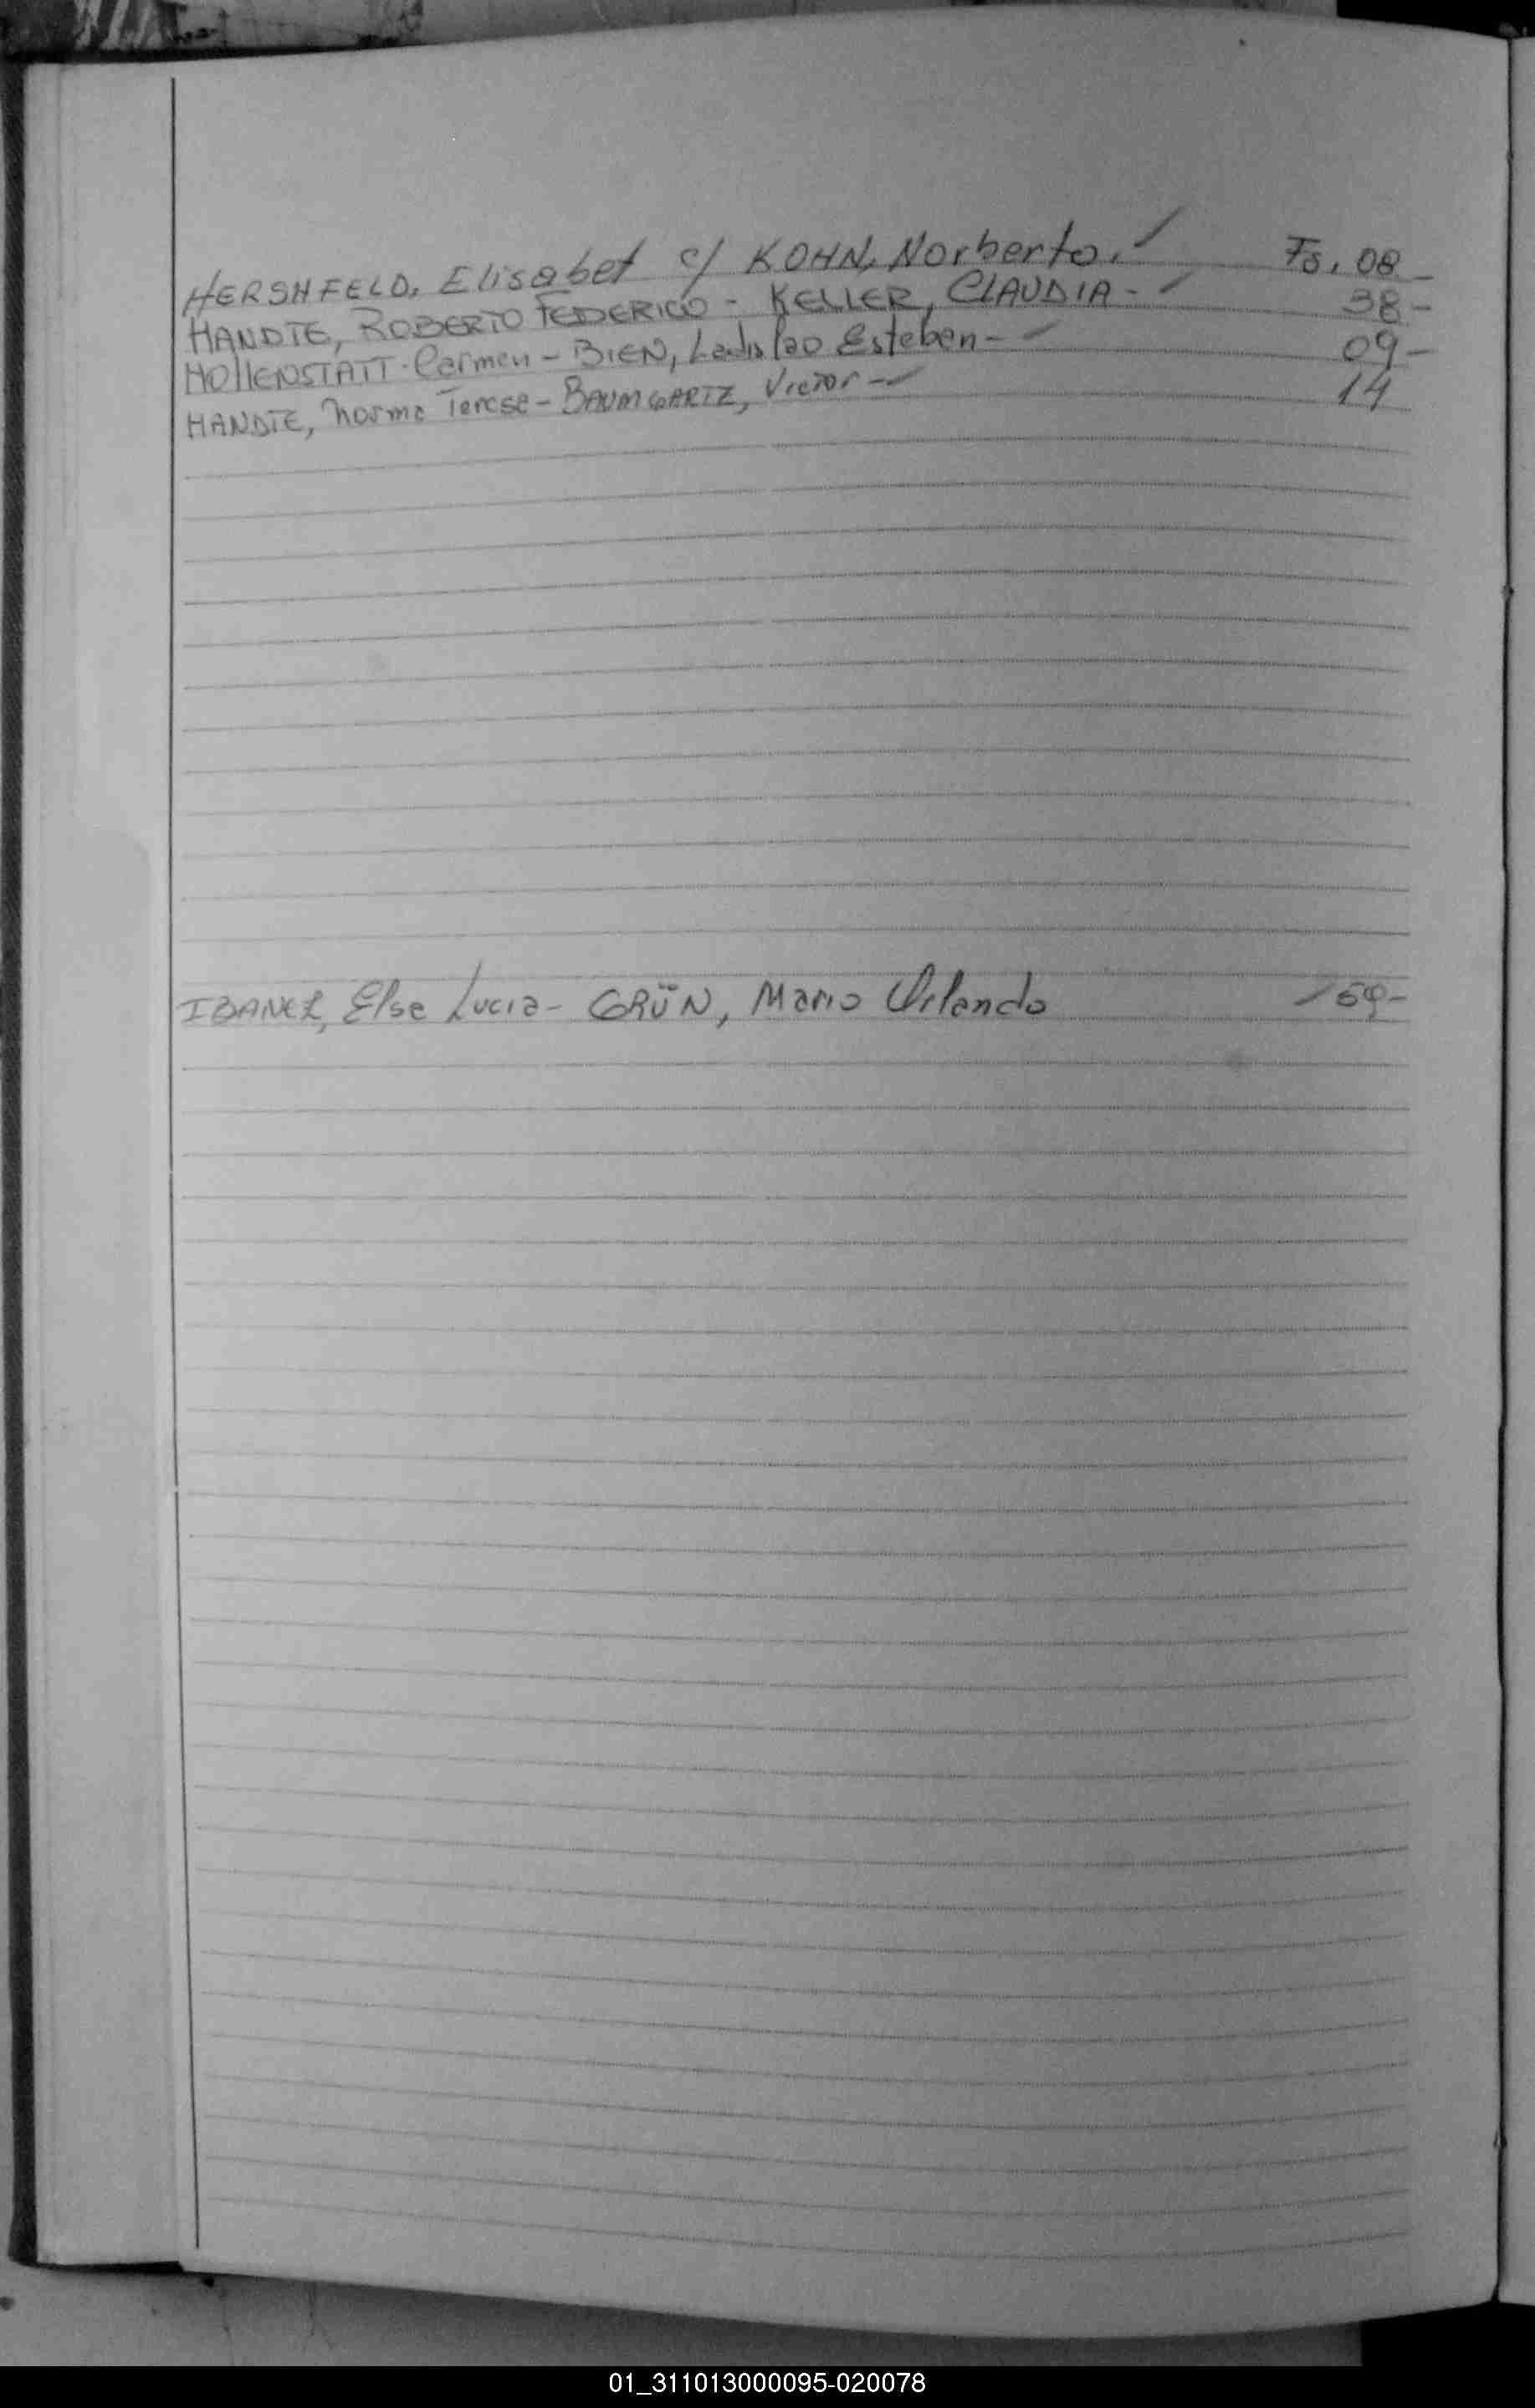 HERSHFELD, Elisabet c/ KOHN, Norberto. Fs. 08 -
HANDTE, ROBERTO FEDERICO - KELLER, CLAUDIA - 38 -
HOllENSTATT - Carmen - BIEN, Ladislao Esteban - 09 -
HANDTE, Norma Teresa - BAUMGARTZ, Victor - 14
IBANEZ, Elsa Lucia - GRÜN, Mario Orlando 59 -
01_311013000095-020078